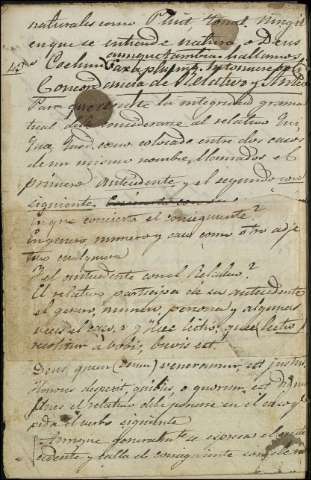 naturales como Pluit, tonat, ningit
en que se entiende natura, o Deus
aunque tambien hallamos
Coelum
Concordancia de Relativo y Antec
Para que resulte la integridad grama
tical debe considerarse al relativo Qui,
Quæ, Quod, como colocado entre dos casos
de un mismo nombre, llamados el
primero antecedente, y el segundo con
siguiente.
En que concierta el consiguiente?
En genero, numero y caso como otro adje
tivo cualquiera
Y el antecedente con el Relativo?
El relativo participa de su antecedente
el genero, numero, persona y algunas
veces el caso, v. g. Hæc lectio, quæ (lectio)
á vobis, brevis est
Deus, quem (Deum) veneramur, est justus
el relativo debe ponerse en el caso q
pida el verbo siguiente
Aunque generalmte se espresa el ante
cedente y calla el consiguiente